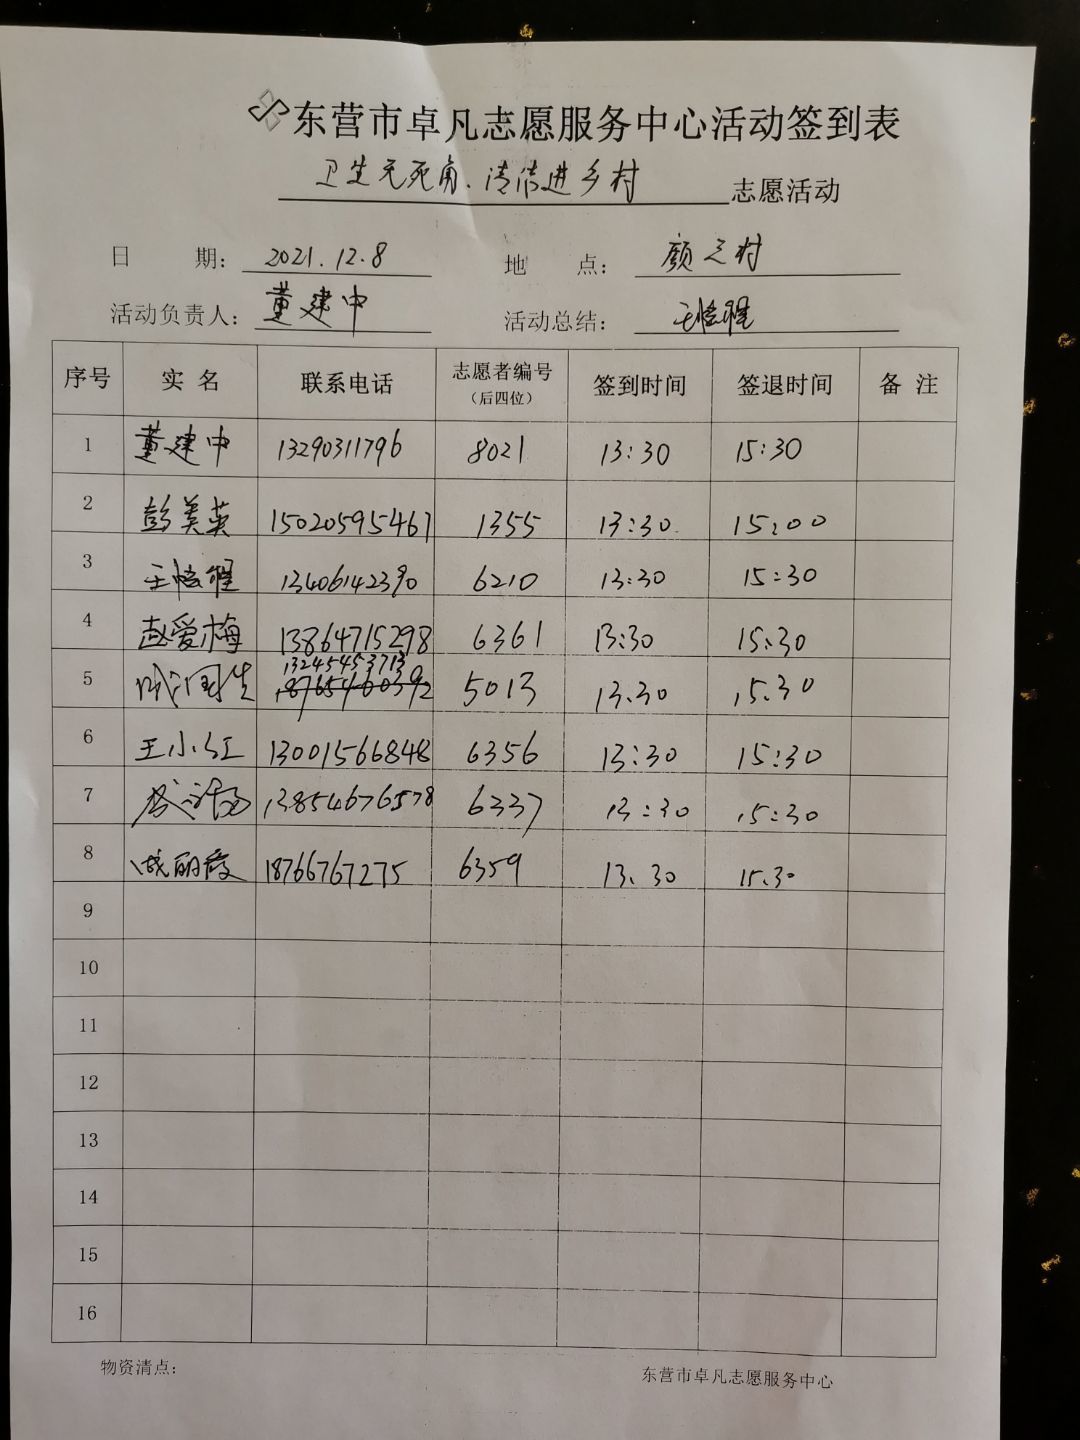 东营市卓凡志愿服务中心活动签到表
卫生无死角、清洁进乡村 志愿活动
日 期: 2021.12.8 地 点: 颜之村
活动负责人: 董建中 活动总结:
序号 实名 联系电话 志愿者编号(后四位) 签到时间 签退时间 备注
1 董建中 13290311796 8021 13:30 15:30
2 彭美英 15020595467 1355 13:30 15:00
3 13406142390 6210 13:30 15:30
4 赵爱梅 13864715298 6361 13:30 15:30
5 13245453713 18765460392 5013 13.30 15.30
6 王小红 13001566848 6356 13:30 15:30
7 13854676578 6337 13:30 15:30
8 18766767275 6359 13.30 15.30
9
10
11
12
13
14
15
16
物资清点: 东营市卓凡志愿服务中心